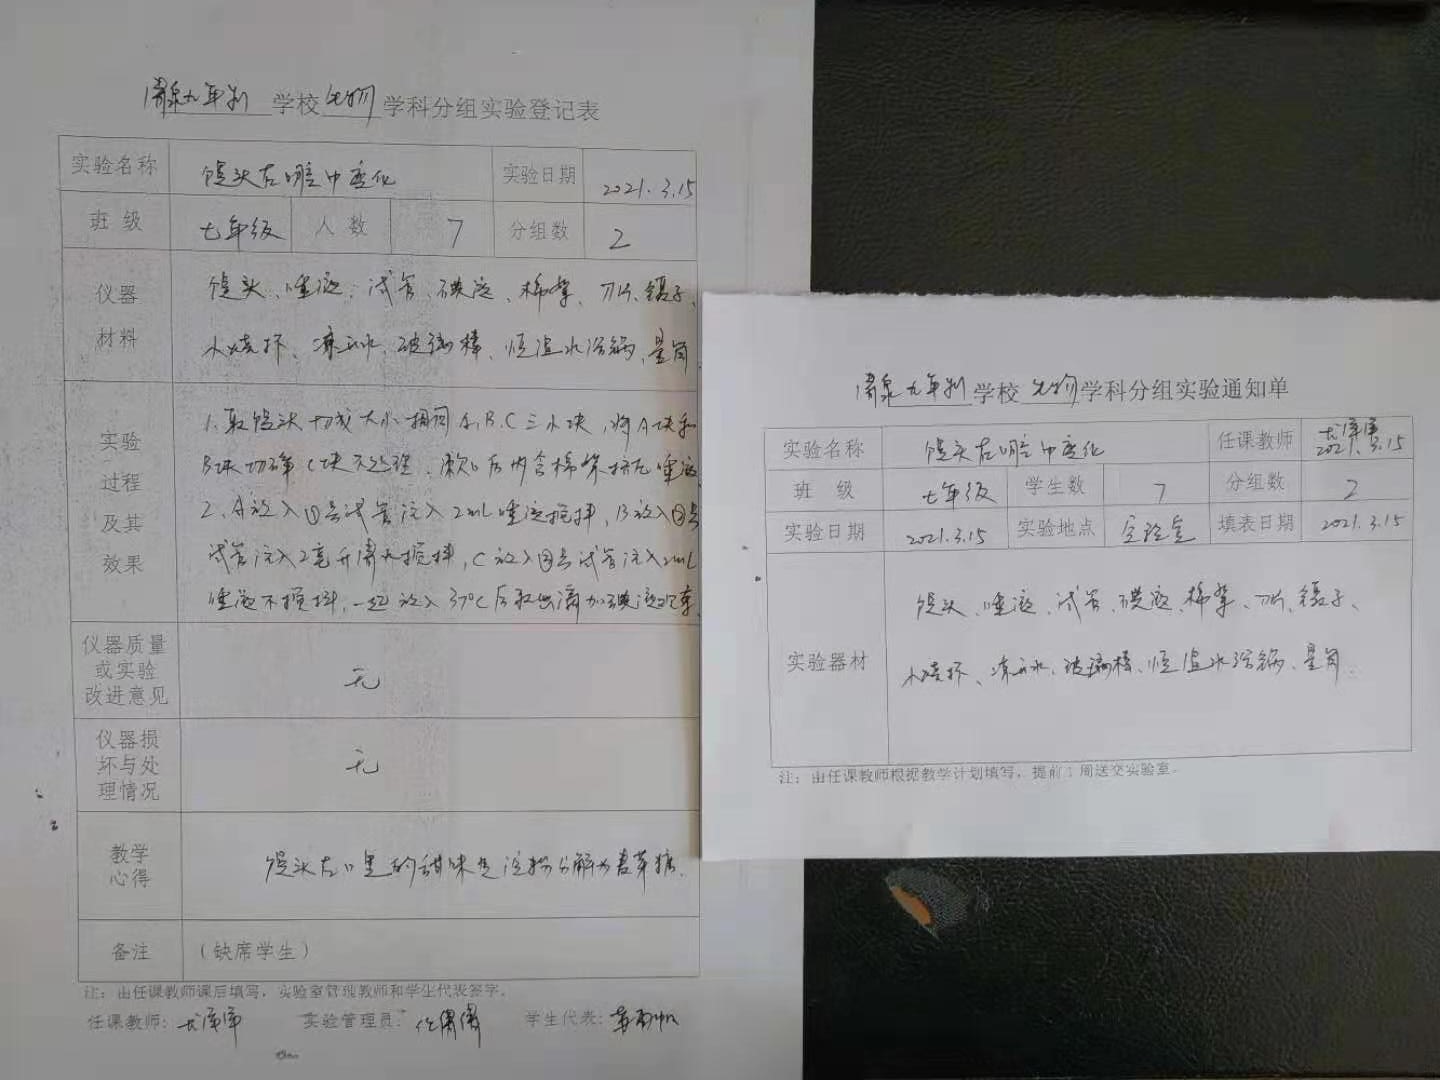 清泉九年制学校生物学科分组实验登记表
实验名称 馒头在口腔中变化 实验日期 2021.3.15
班 级 七年级 人 数 7 分组数 2
仪器材料
馒头、唾液、试管、碘液、棉絮、刀片、镊子、
小烧杯、凉开水、玻璃棒、恒温水浴锅、量筒
实验过程及其效果
1.取馒头切成大小相同A、B、C三小块,将A块和
B块切碎C块不处理,漱口后内含棉絮
2、A放入①号试管注入2mL唾液搅拌,B放入②号
试管注入2毫升清水搅拌,C放入③号试管注入2mL
唾液不搅拌,一起放入37℃后取出滴加碘液观察
仪器质量或实验改进意见
无
仪器损坏与处理情况
无
教学心得
馒头在口里的甜味是淀粉分解为麦芽糖.
备注 (缺席学生)
注:由任课教师课后填写,实验室管理教师和学生代表签字。
任课教师: 实验管理员: 学生代表:
清泉九年制学校 生物学科分组实验通知单
实验名称 馒头在口腔中变化 任课教师 2021.3.15
班 级 七年级 学生数 7 分组数 2
实验日期 2021.3.15 实验地点 实验室 填表日期 2021.3.15
实验器材
馒头、唾液、试管、碘液、棉絮、刀片、镊子、
小烧杯、凉开水、玻璃棒、恒温水浴锅、量筒.
注:由任课教师根据教学计划填写,提前1周送交实验室。